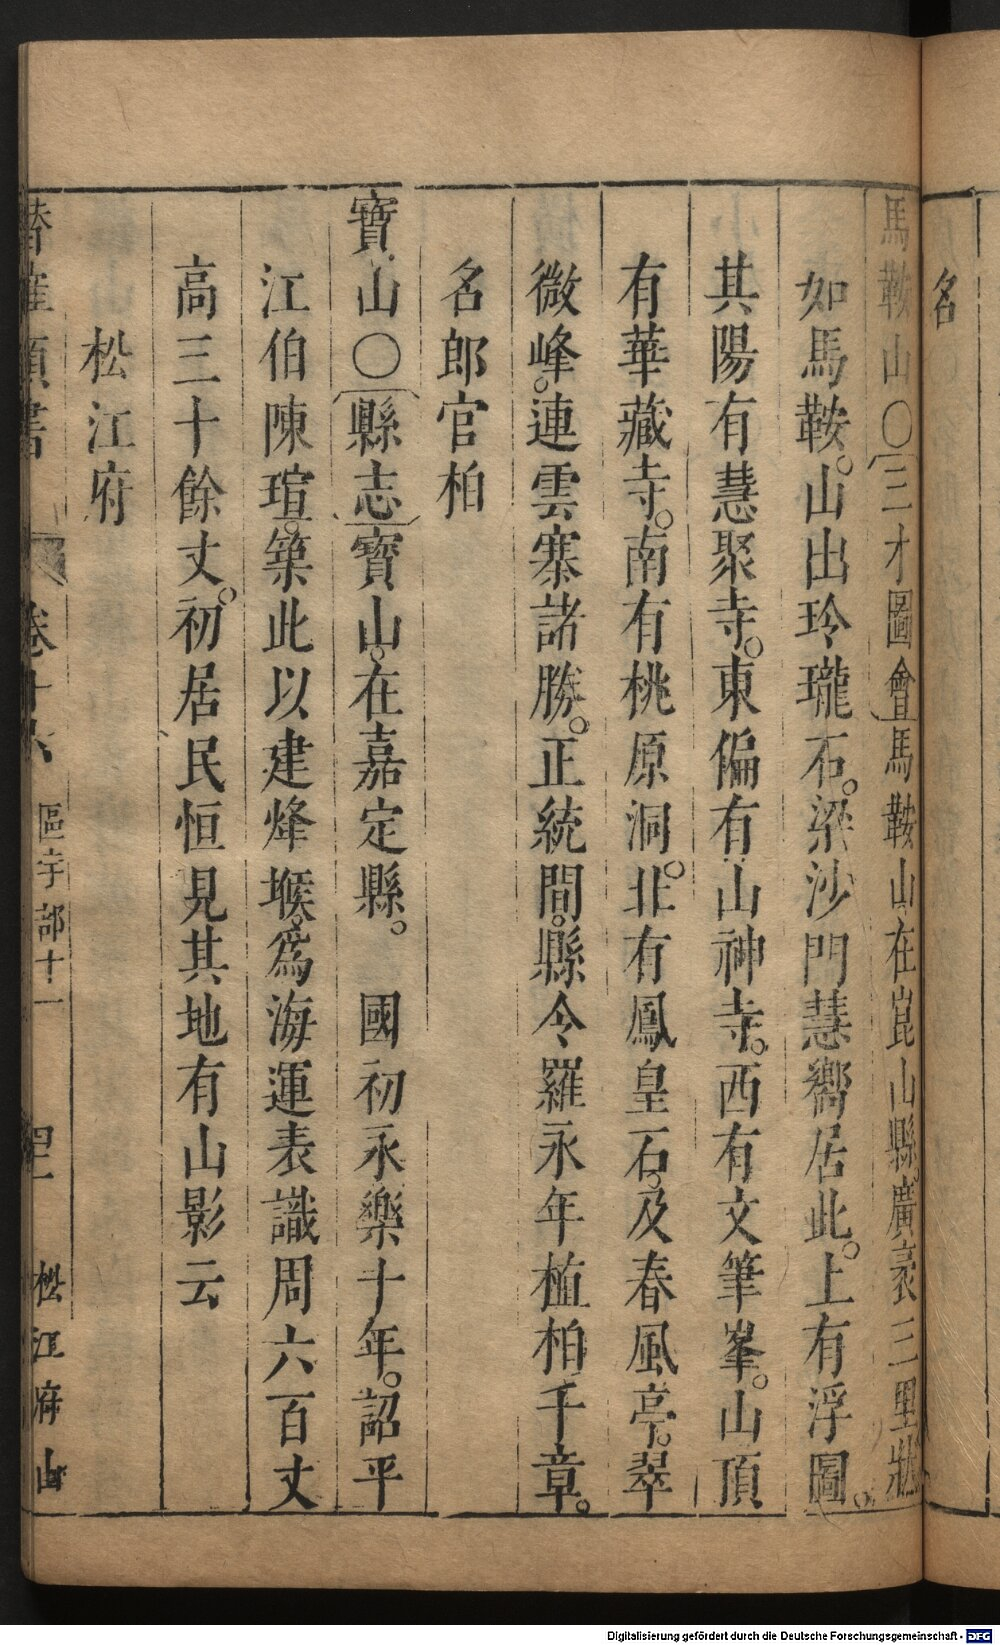 名
馬鞍山○三才圖會馬鞍山在崑山縣廣袤三里狀
如馬鞍山出玲瓏石梁沙門慧嚮居此上有浮圖
其陽有慧聚寺東偏有山神寺西有文筆峯山頂
有華藏寺南有桃原洞北有鳳皇石及春風亭翠
微峰連雲寨諸勝正統間縣令羅永年植柏千章
名郎官柏
寶山○縣志寶山在嘉定縣 國初永樂十年詔平
江伯陳瑄築此以建烽堠為海運表識周六百丈
高三十餘丈初居民恒見其地有山影云
松江府
潛確類書 卷十六 區宇部十一 四一 松江府山
Digitalisierung gefördert durch die Deutsche Forschungsgemeinschaft - DFG